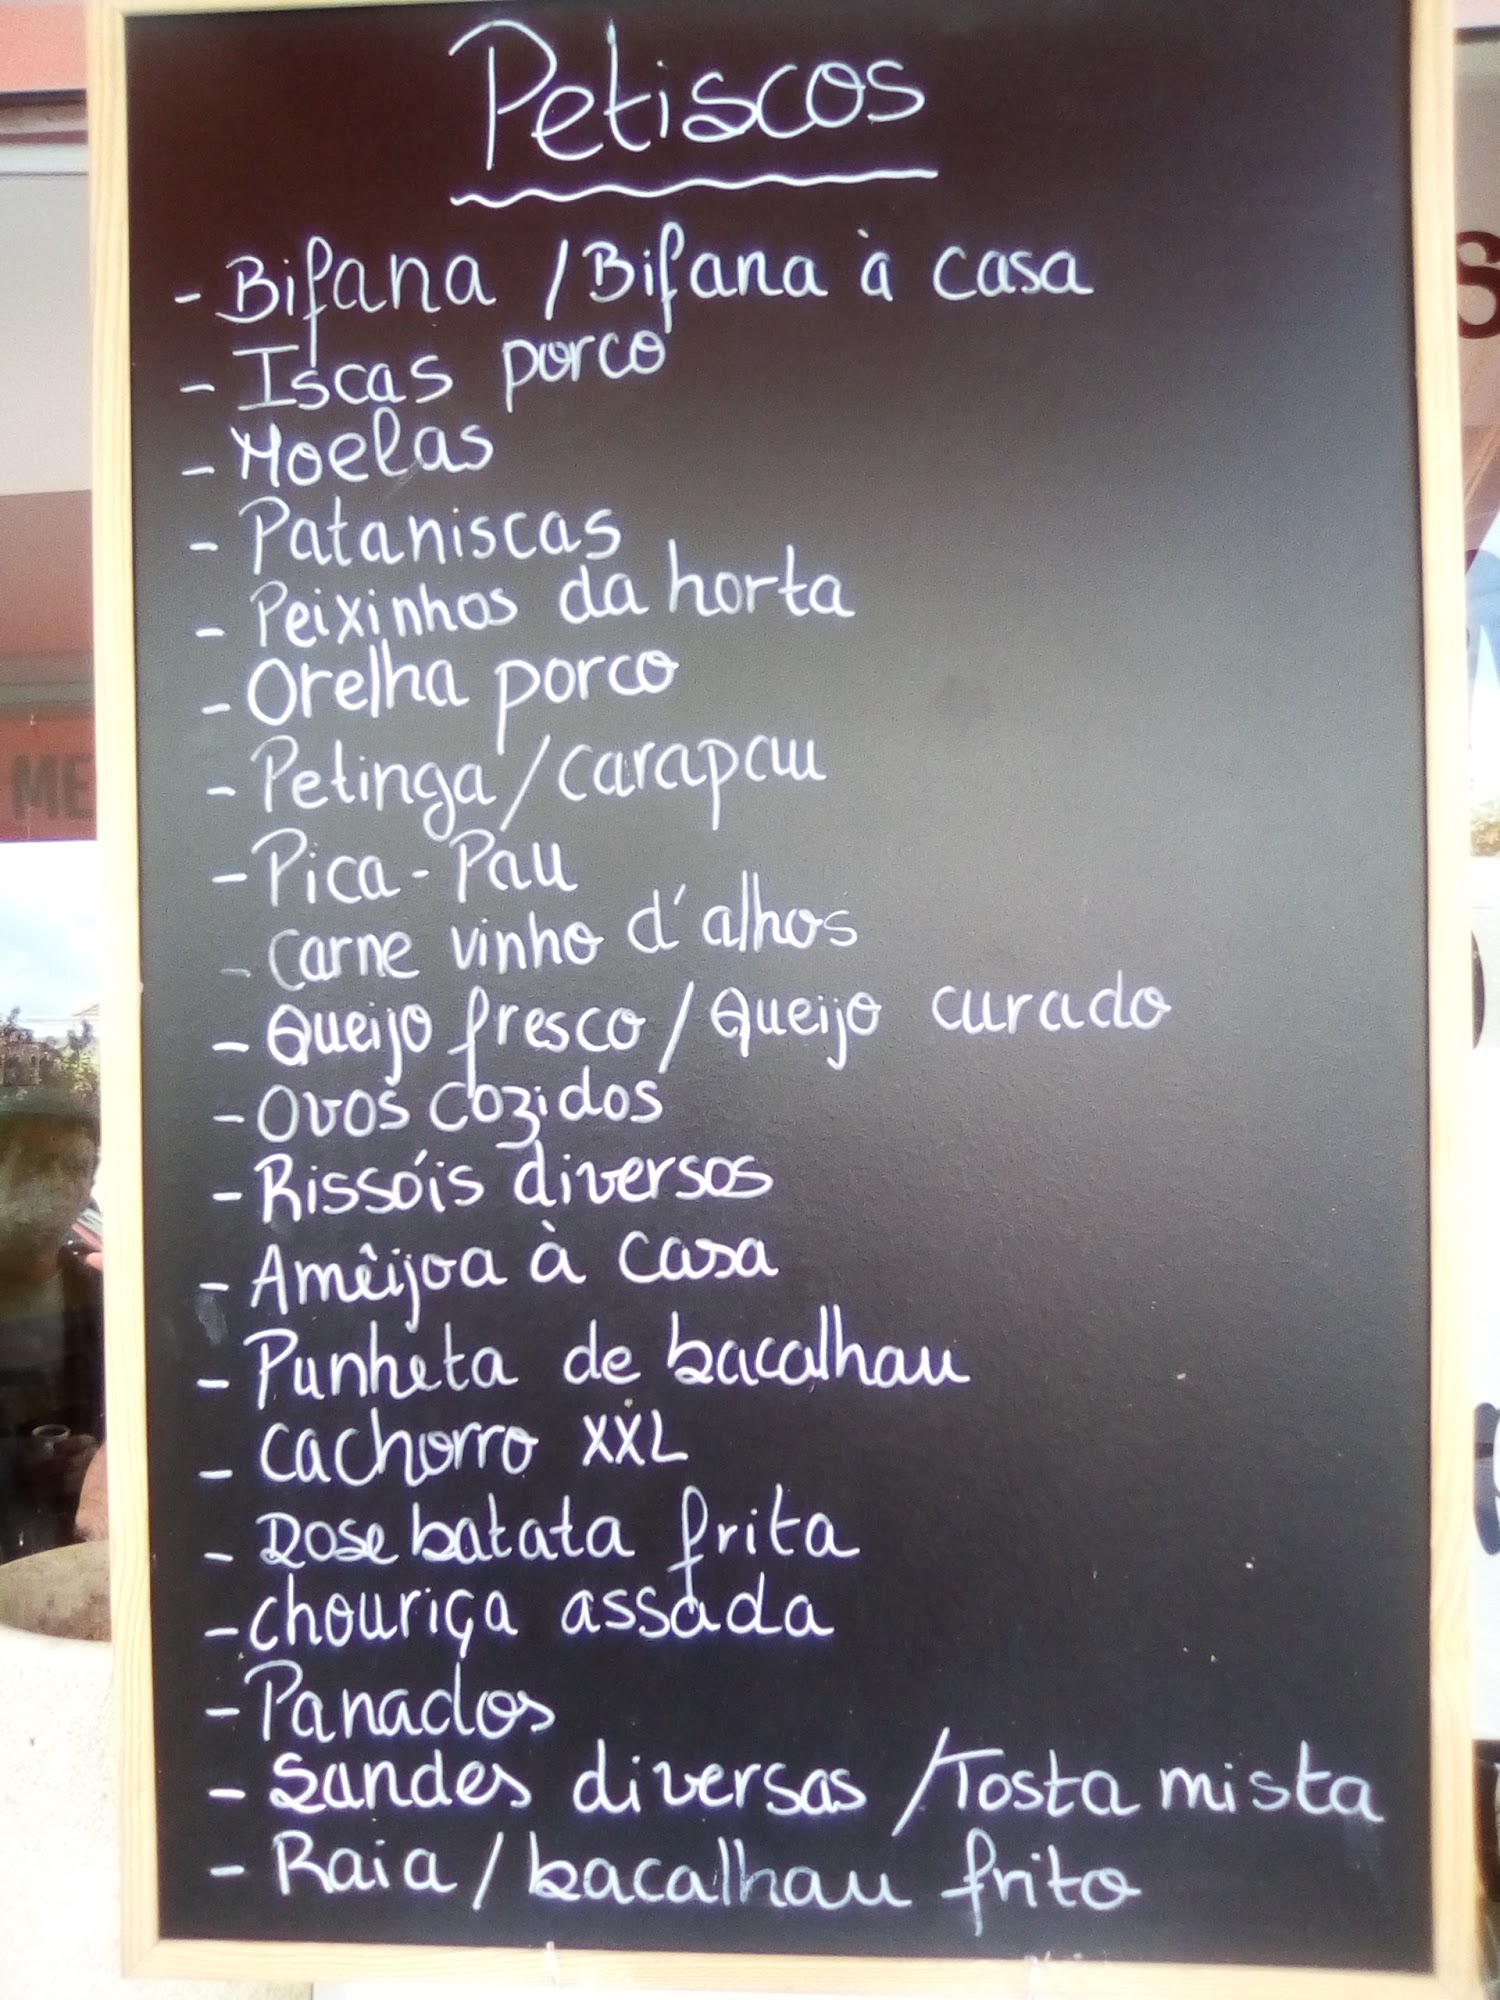 Petiscos
- Bifana / Bifana à casa
- Iscas porco
- Moelas
- Pataniscas
- Peixinhos da horta
- Orelha porco
- Petinga / carapau
- Pica - Pau
- Carne vinho d'alhos
- Queijo fresco / Queijo curado
- Ovos cozidos
- Rissóis diversos
- Amêijoa à casa
- Punheta de bacalhau
- Cachorro XXL
- Dose batata frita
- chouriça assada
- Panados
- Sandes diversas / Tosta mista
- Raia / bacalhau frito
ME